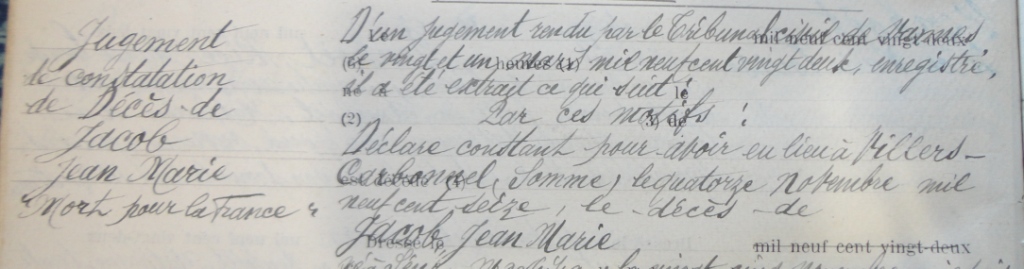 Jugement
de constatation
de Décès de
Jacob
Jean Marie
"Mort pour la France"
D'un jugement rendu par le Tribunal civil de Vannes
mil neuf cent vingt-deux
le vingt et un mars mil neuf cent vingt deux, enregistré,
heures (1)
il a été extrait ce qui suit :
né à
le
(2)
Par ces motifs :
(3) de
Déclare constant pour avoir eu lieu à Villers-
Carbonnel, (Somme) le quatorze novembre mil
neuf cent seize, le décès de
Jacob Jean Marie
mil neuf cent vingt-deux